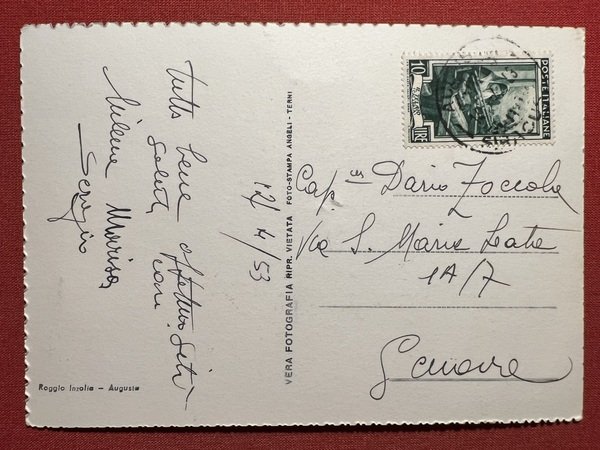 Tutto bene
saluti
Milena Marisa
Sergio
12/4/53
Roggio Inzolia - Augusta
VERA FOTOGRAFIA RIPR. VIETATA FOTO-STAMPA ANGELI - TERNI
10
LIRE
POSTE ITALIANE
Cap. Dario Zoccola
Via S. Maria Lata
1A/7
Genova